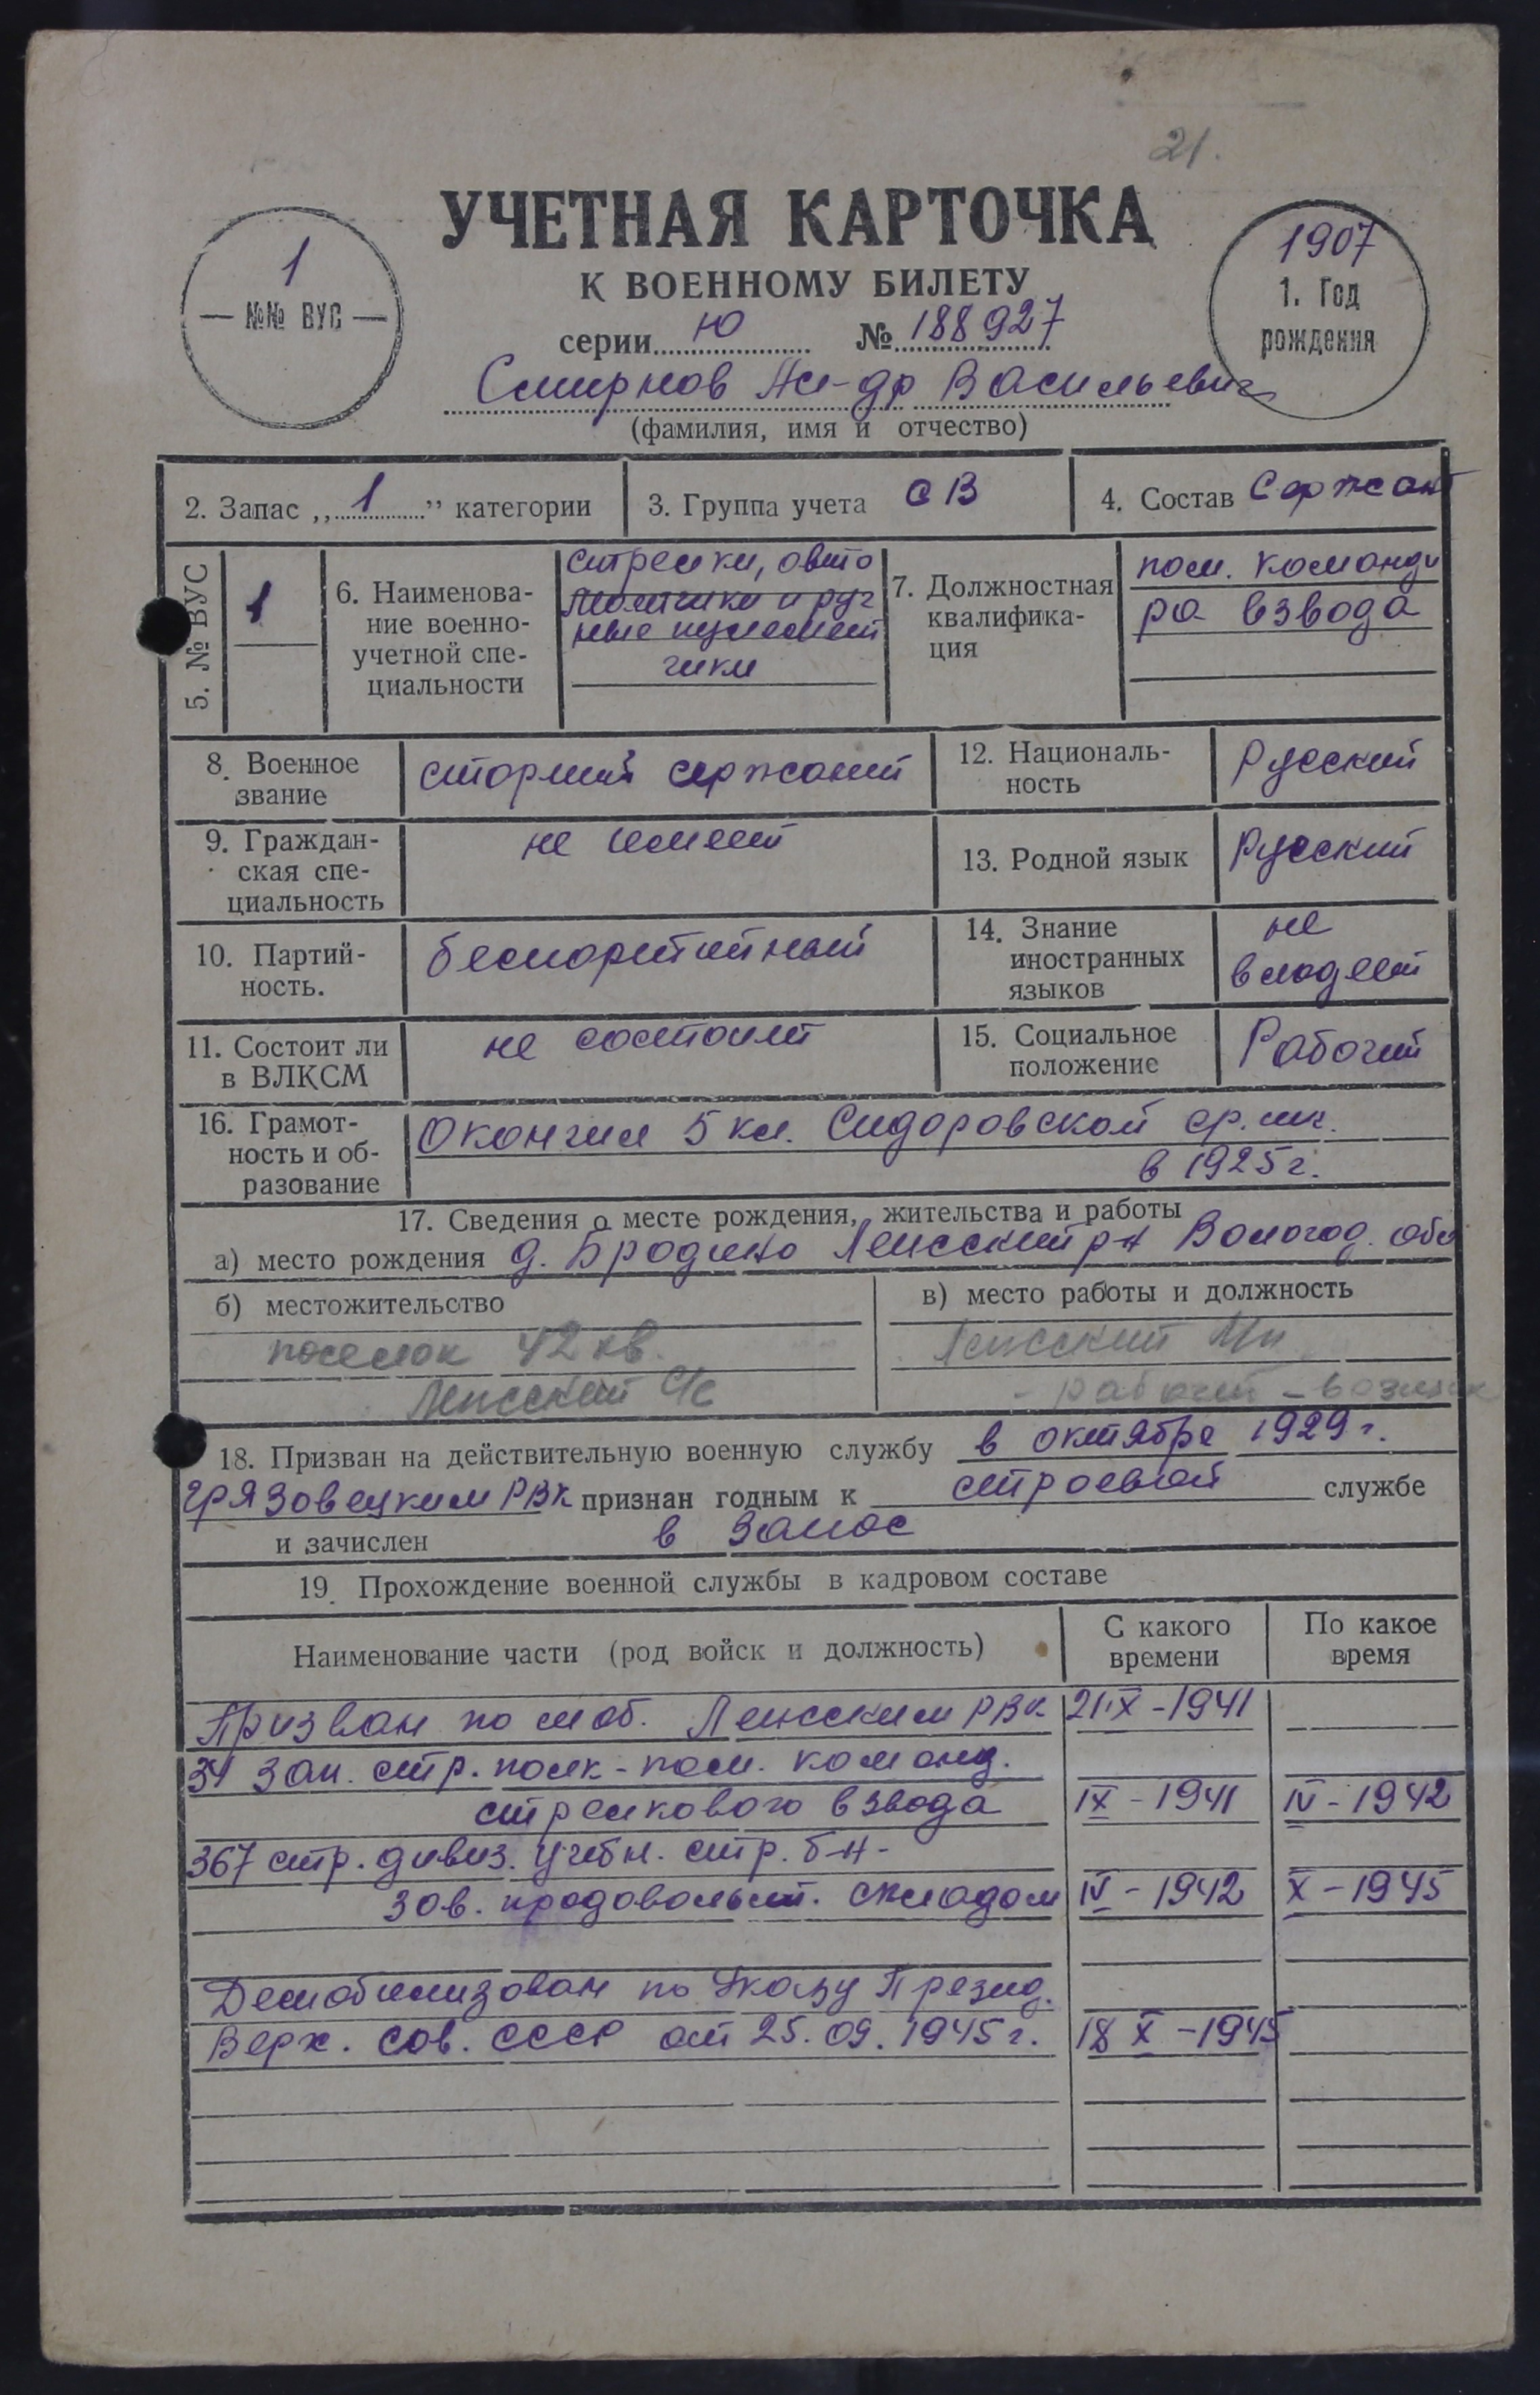 21.
УЧЕТНАЯ КАРТОЧКА
К ВОЕННОМУ БИЛЕТУ
1
№№ ВУС
1907
1. Год
рождения
серии Ю № 188927
Смирнов Ал-др Васильевич
(фамилия, имя и отчество)
2. Запас „1” категории
3. Группа учета СВ
4. Состав Сержант
5. № ВУС
1
6. Наименова-
ние военно-
учетной спе-
циальности
стрелки, авто
матчики и руч
ные пулемет
чики
7. Должностная
квалифика-
ция
пом. команди
ра взвода
8. Военное
звание
старший сержант
12. Националь-
ность
Русский
9. Граждан-
ская спе-
циальность
не имеет
13. Родной язык
Русский
10. Партий-
ность.
беспартийный
14. Знание
иностранных
языков
не
владеет
11. Состоит ли
в ВЛКСМ
не состоит
15. Социальное
положение
Рабочий
16. Грамот-
ность и об-
разование
Окончил 5 кл. Сидоровской ср. шк.
в 1925 г.
17. Сведения о месте рождения, жительства и работы
а) место рождения д. Бродино Ленский р-н Вологод. обл
б) местожительство
поселок 42 кв.
Ленский с/с
в) место работы и должность
Ленский
- рабочий -
18. Призван на действительную военную службу в октябре 1929 г.
Грязовецким РВК признан годным к строевой службе
и зачислен в запас
19. Прохождение военной службы в кадровом составе
Наименование части (род войск и должность)
С какого
времени
По какое
время
Призван по моб. Ленским РВК 21 IX - 1941
34 зап. стр. полк - пом. команд.
стрелкового взвода IX - 1941 IV - 1942
367 стр. дивиз. учебн. стр. б-н -
зав. продовольст. складом IV - 1942 X - 1945
Демобилизован по Указу Презид.
Верх. Сов. СССР от 25.09.1945 г. 18 X - 1945